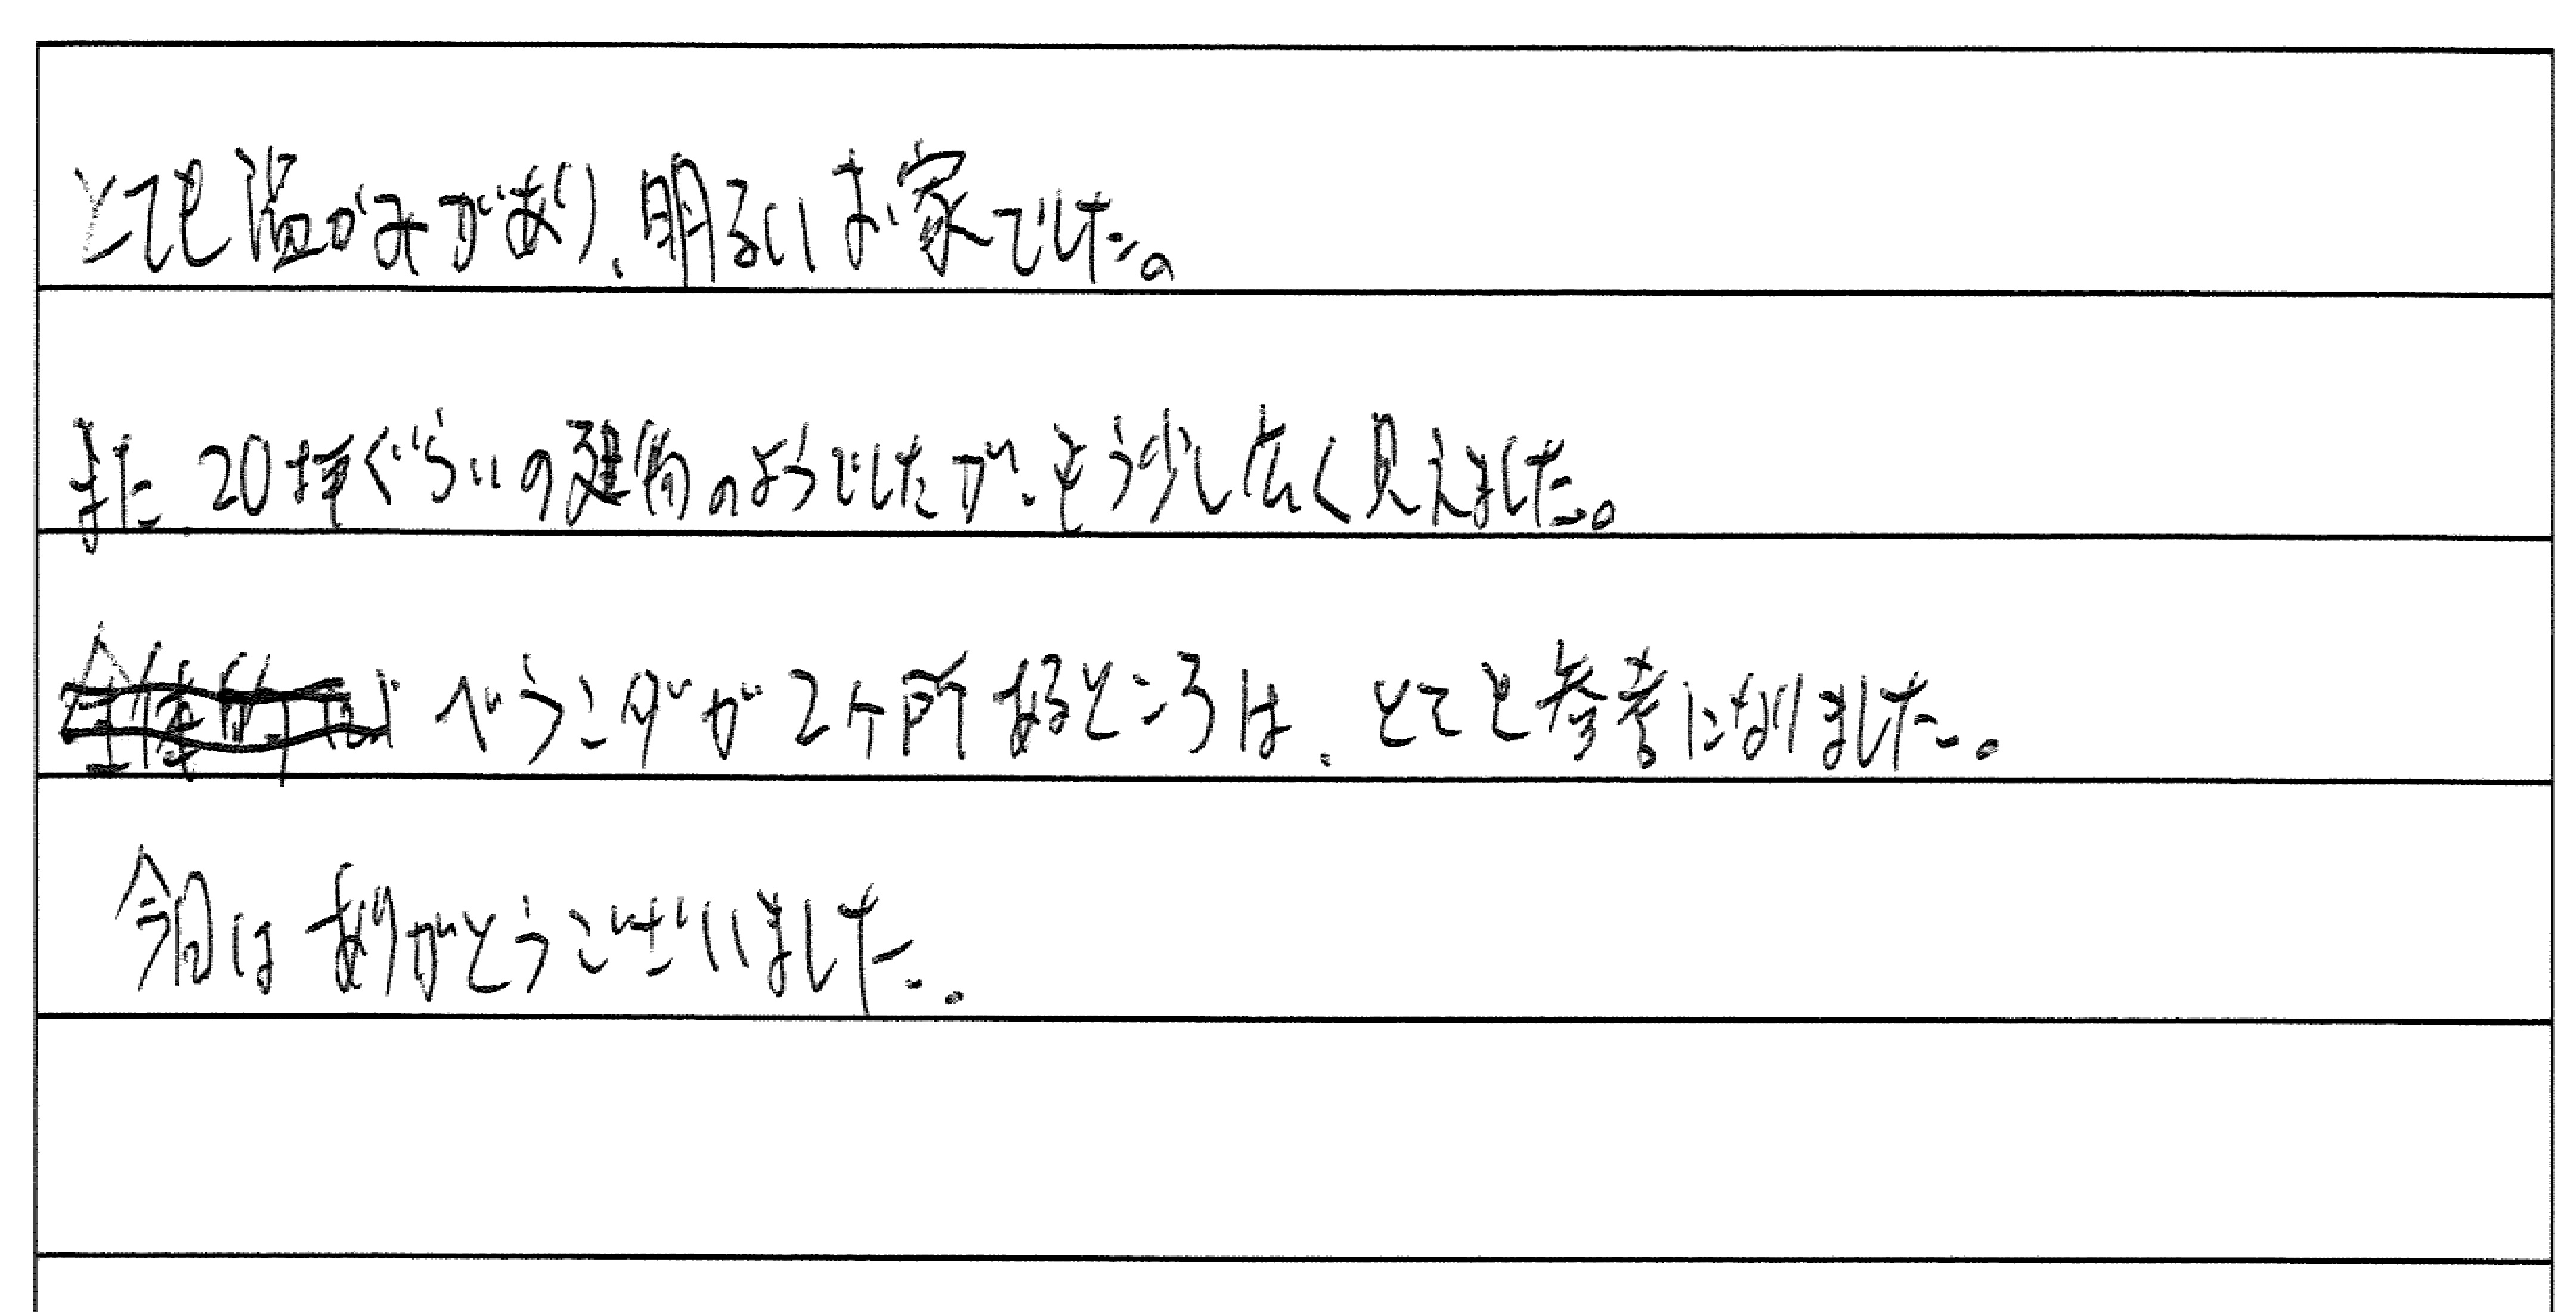 とても温かみがあり、明るいお家でした。
また、20坪ぐらいの建物のようでしたが、もう少し広く見えました。
べランダが2ヶ所あるところは、とても参考になりました。
今日はありがとうございました。